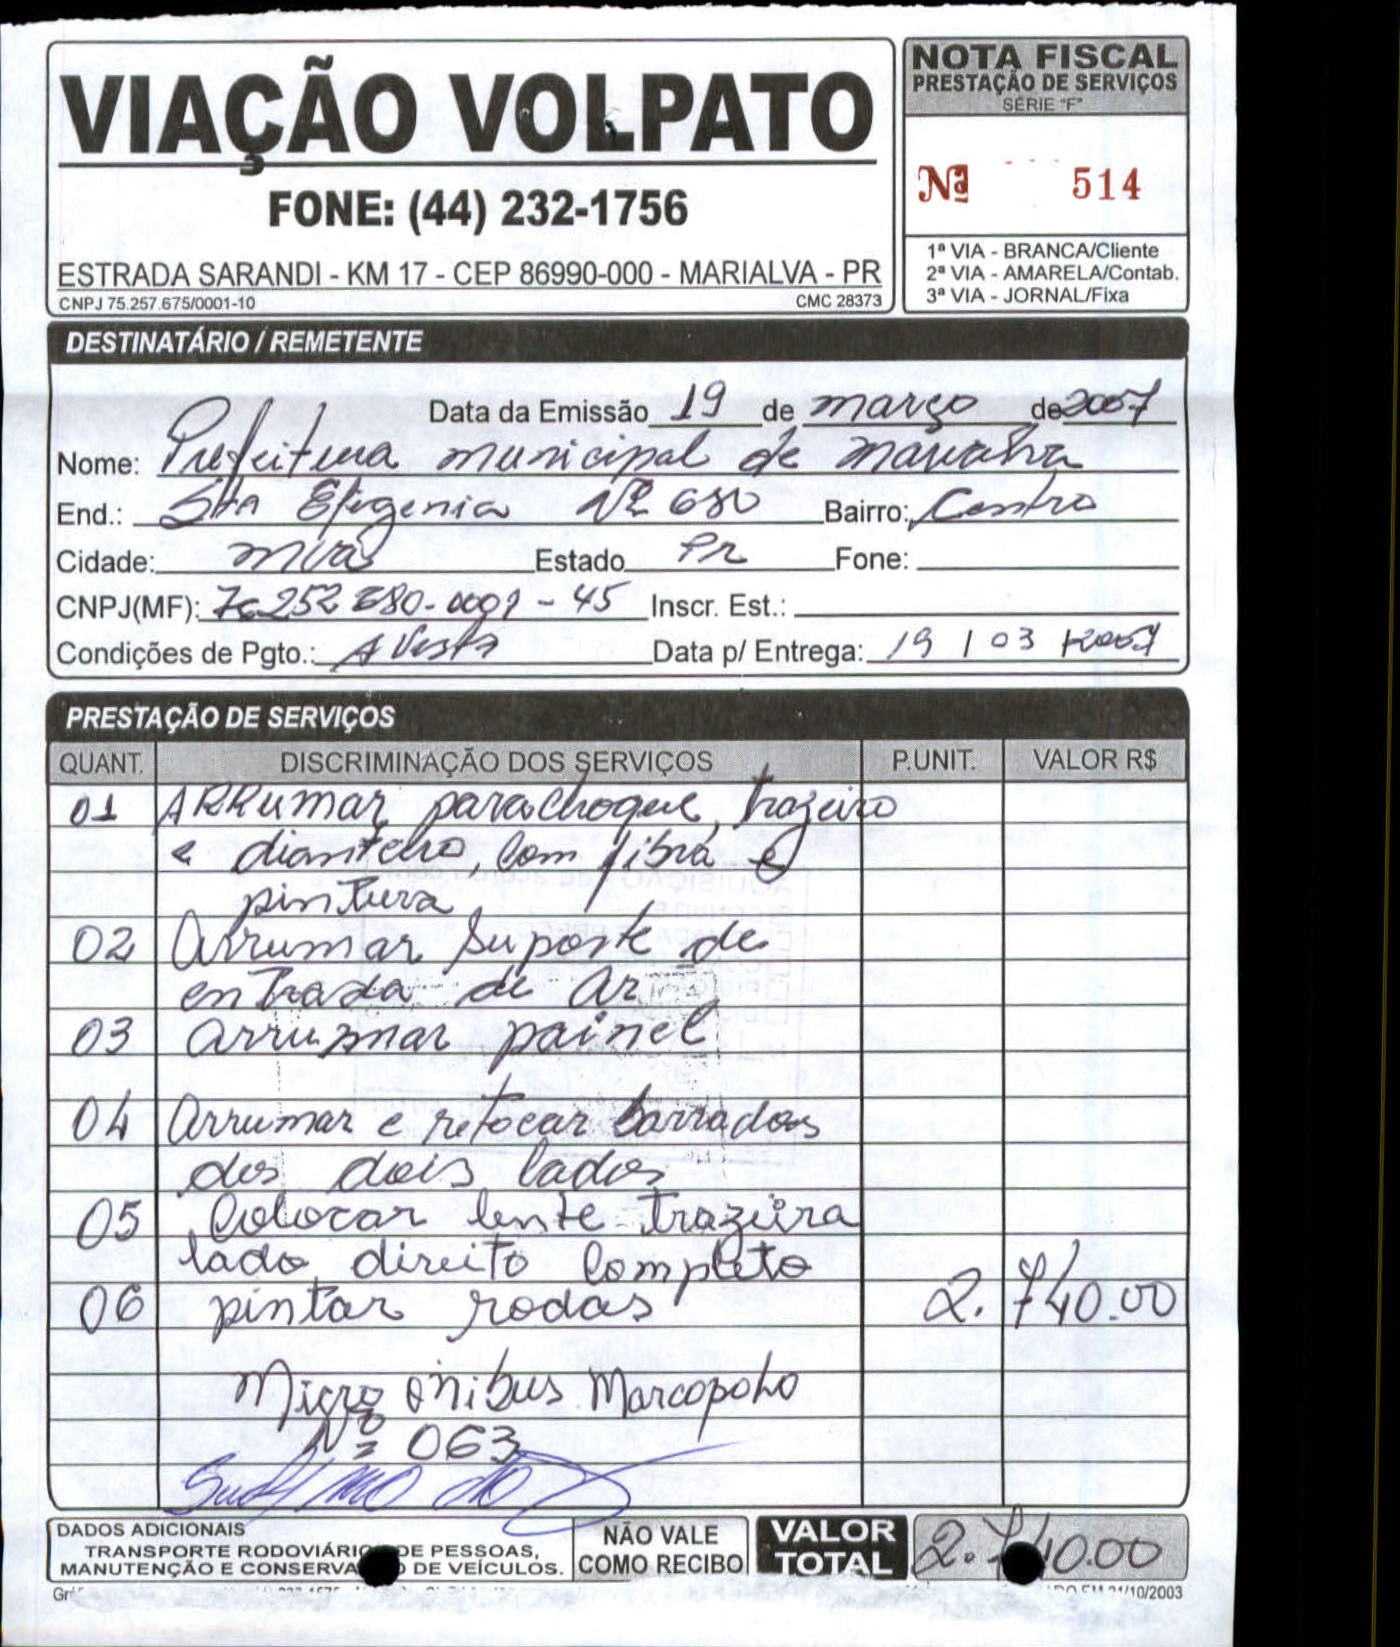 VIAÇÃO VOLPATO
FONE: (44) 232-1756
ESTRADA SARANDI - KM 17 - CEP 86990-000 - MARIALVA - PR
CNPJ 75.257.675/0001-10 CMC 28373
NOTA FISCAL
PRESTAÇÃO DE SERVIÇOS
SÉRIE "F"
Nª 514
1ª VIA - BRANCA/Cliente
2ª VIA - AMARELA/Contab.
3ª VIA - JORNAL/Fixa
DESTINATÁRIO / REMETENTE
Data da Emissão 19 de março de 2007
Nome: Prefeitura municipal de Marialva
End.: Sta Efigenia Nº 680 Bairro: Centro
Cidade: Estado Pr Fone:
CNPJ(MF): 680-0001-45 Inscr. Est.:
Condições de Pgto.: A Vista Data p/ Entrega: 19 / 03 / 2007
PRESTAÇÃO DE SERVIÇOS
QUANT. DISCRIMINAÇÃO DOS SERVIÇOS P.UNIT. VALOR R$
01 ARRumar parachoque trazeiro
e dianteiro, com fibra e
pintura
02 Arrumar Suporte de
entrada de Ar
03 arrumar painel
04 Arrumar e retocar barrados
dos dois lados
05 Colocar lente trazeira
lado direito completo
06 pintar rodas 2.740.00
Micro onibus Marcopolo
Nº 063
DADOS ADICIONAIS
TRANSPORTE RODOVIÁRIO DE PESSOAS,
MANUTENÇÃO E CONSERVA DE VEÍCULOS.
NÃO VALE
COMO RECIBO
VALOR
TOTAL
2.740.00
/10/2003